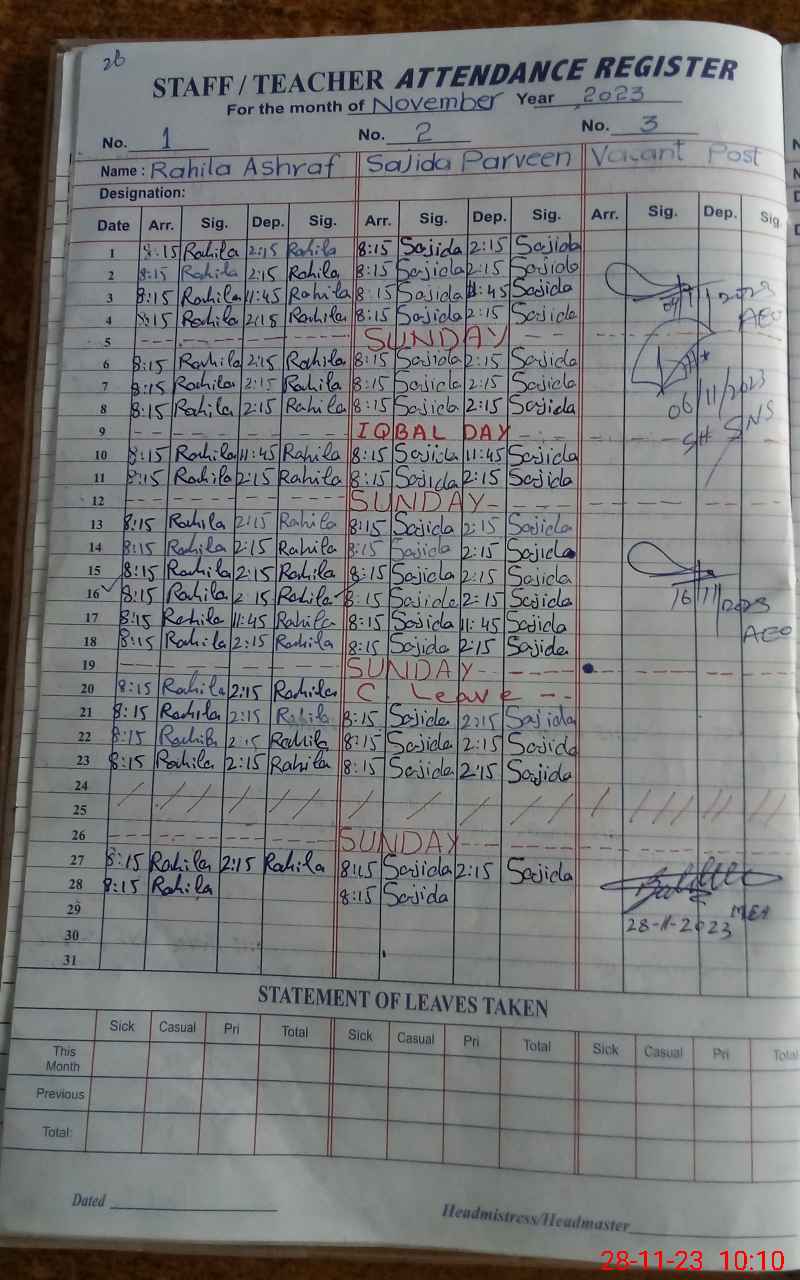 26
STAFF / TEACHER ATTENDANCE REGISTER
For the month of November Year 2023
No. 1 No. 2 No. 3
Name : Rahila Ashraf Sajida Parveen Vacant Post
Designation:
Date Arr. Sig. Dep. Sig. Arr. Sig. Dep. Sig. Arr. Sig. Dep. Sig.
1 8:15 Rahila 2:15 Rahila 8:15 Sajida 2:15 Sajida
2 8:15 Rahila 2:15 Rahila 8:15 Sajida 2:15 Sajida
3 8:15 Rahila 11:45 Rahila 8:15 Sajida 11:45 Sajida
4 8:15 Rahila 2:15 Rahila 8:15 Sajida 2:15 Sajida AEO
5 SUNDAY
6 8:15 Rahila 2:15 Rahila 8:15 Sajida 2:15 Sajida
7 8:15 Rahila 2:15 Rahila 8:15 Sajida 2:15 Sajida
8 8:15 Rahila 2:15 Rahila 8:15 Sajida 2:15 Sajida 06/11/2023
9 IQBAL DAY SH SNS
10 8:15 Rahila 11:45 Rahila 8:15 Sajida 11:45 Sajida
11 8:15 Rahila 2:15 Rahila 8:15 Sajida 2:15 Sajida
12 SUNDAY
13 8:15 Rahila 2:15 Rahila 8:15 Sajida 2:15 Sajida
14 8:15 Rahila 2:15 Rahila 8:15 Sajida 2:15 Sajida
15 8:15 Rahila 2:15 Rahila 8:15 Sajida 2:15 Sajida
16 8:15 Rahila 2:15 Rahila 8:15 Sajida 2:15 Sajida 16/11/2023
17 8:15 Rahila 11:45 Rahila 8:15 Sajida 11:45 Sajida AEO
18 8:15 Rahila 2:15 Rahila 8:15 Sajida 2:15 Sajida
19 SUNDAY
20 8:15 Rahila 2:15 Rahila C Leave
21 8:15 Rahila 2:15 Rahila 8:15 Sajida 2:15 Sajida
22 8:15 Rahila 2:15 Rahila 8:15 Sajida 2:15 Sajida
23 8:15 Rahila 2:15 Rahila 8:15 Sajida 2:15 Sajida
24
25
26 SUNDAY
27 8:15 Rahila 2:15 Rahila 8:15 Sajida 2:15 Sajida
28 8:15 Rahila 8:15 Sajida MEA
29 28-11-2023
30
31
STATEMENT OF LEAVES TAKEN
Sick Casual Pri Total Sick Casual Pri Total Sick Casual Pri Total
This Month
Previous
Total:
Dated Headmistress/Headmaster
28-11-23 10:10